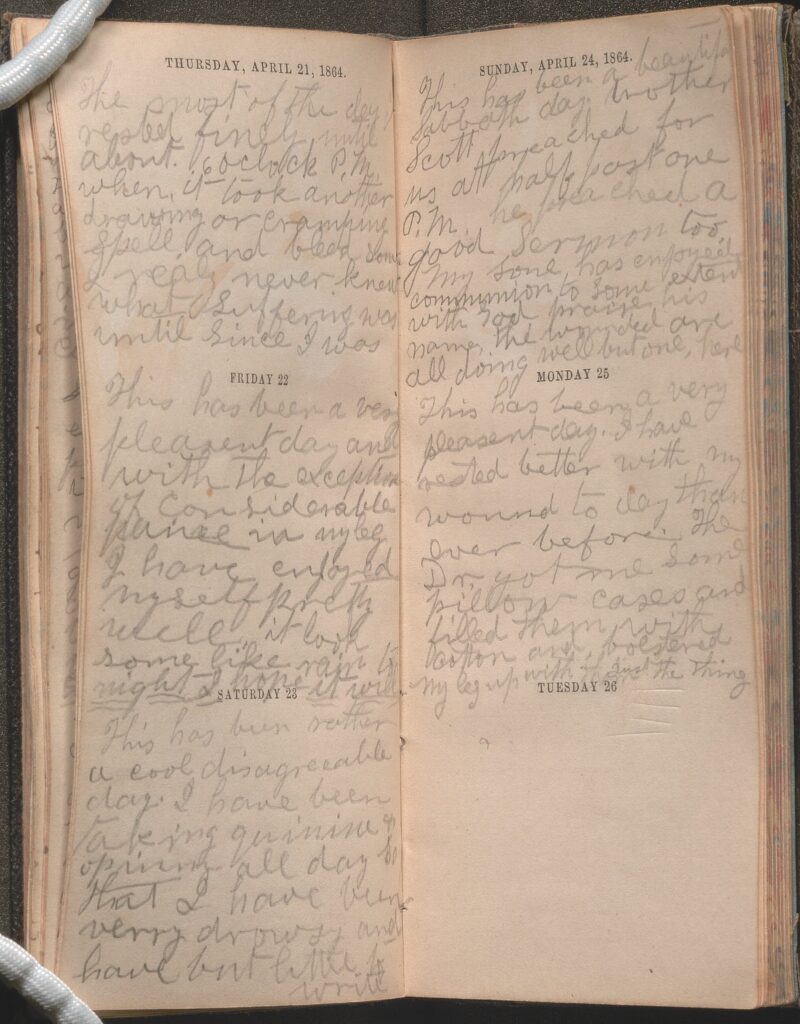 THURSDAY, APRIL 21, 1864.
The most of the day
rested finely until
about 6 oclock P.M.
when, it took another
drawing or cramping
spell, and been some
I realy never knew
what suffering was
until since I was
FRIDAY 22
This has been a very
pleasent day and
with the exception
of considerable
paine in my leg
I have enjoyed
myself prety
well, it look
some like rain to
night I hope it will
SATURDAY 23
This has been rather
a cool disagreeable
day. I have been
taking quinine &
opium all day so
that I have been
verry drowsy and
have but little to
write
SUNDAY, APRIL 24, 1864.
This has been a beautiful
Sabbath day Brother
Scott preached for
us at half past one
P.M. he preached a
good Sermon too,
My soul, has enjoyed
communion to some extent
with God praise his
name, the wounded are
all doing well but one, here
MONDAY 25
This has been a very
pleasent day. I have
rested better with my
wound to day than
ever before. The
Dr. got me some
pillow cases and
filled them with
cotton and, bolstered
my leg up with it just the thing
TUESDAY 26